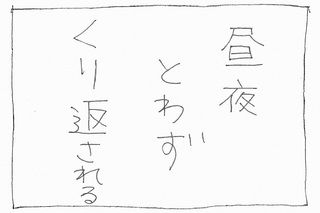 昼夜
とわず
くり返される